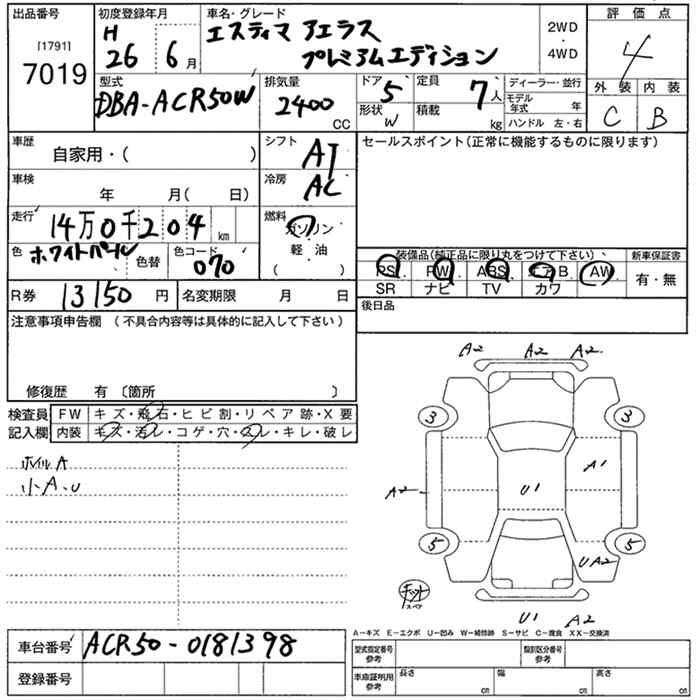 出品番号 初度登録年月 車名・グレード 評価点
[1791] H エスティマ アエラス 2WD 4
7019 26 6月 プレミアムエディション 4WD
型式 排気量 ドア 5 定員 7人 ディーラー・並行 外装 内装
DBA-ACR50W 2400 CC 形状 W 積載 kg モデル年式 年 C B
ハンドル 左・右
車歴 自家用・( ) シフト AT セールスポイント(正常に機能するものに限ります)
車検 年 月( 日) 冷房 AC
走行 14万0千204km 燃料 ガソリン
色 ホワイトパール 色替 色コード 070 軽油 装備品(純正品に限り丸をつけて下さい) 新車保証書
( ) PS PW ABS エアB AW 有・無
R券 13150円 名変期限 月 日 SR ナビ TV カワ
注意事項申告欄 (不具合内容等は具体的に記入して下さい) 後日品
修復歴 有 〔箇所 〕
検査員 FW キズ・飛石・ヒビ割・リペア跡・X要
記入欄 内装 キズ・汚レ・コゲ・穴・スレ・キレ・破レ
ホイルA
小A.U
A2 A2 A2
3 3
A2 U1 A1
5 5
UA2
キット
スペア
U1 A2
A-キズ E-エクボ U-凹み W-補修跡 S-サビ C-腐食 XX-交換済
車台番号 ACR50-0181398 型式指定番号 参考 類別区分番号 参考
登録番号 車庫証明用 参考 長さ cm 幅 cm 高さ cm